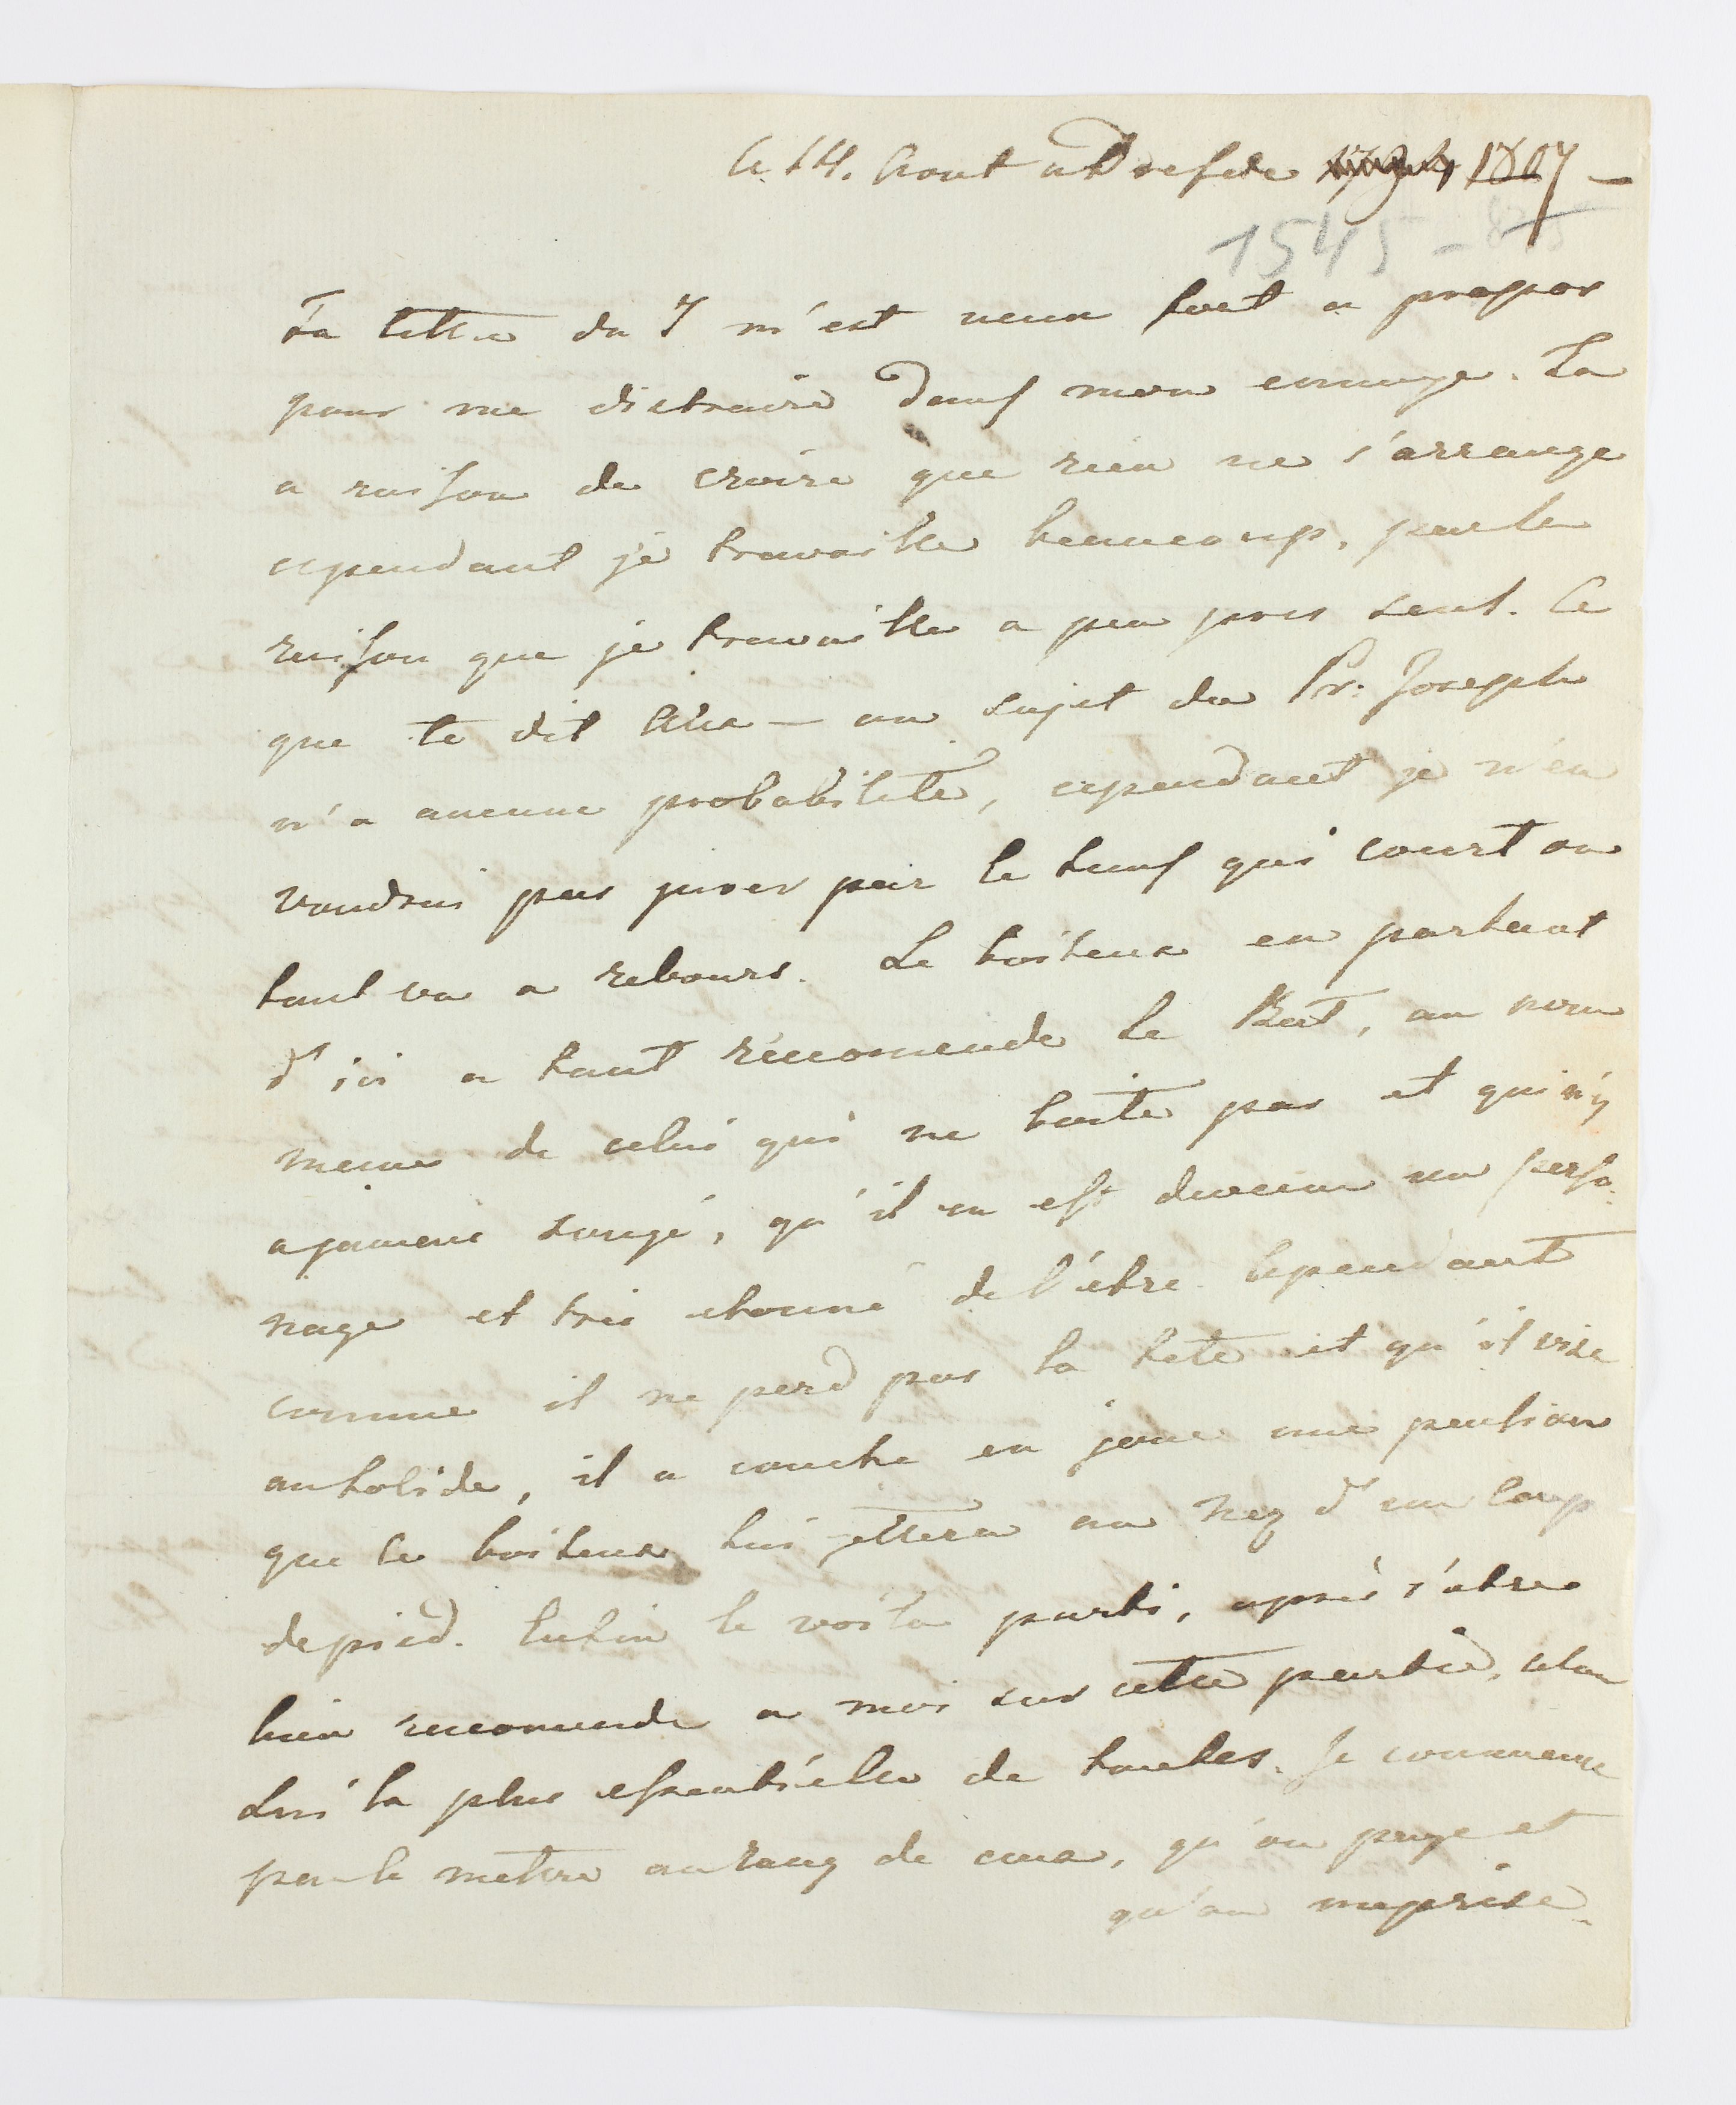 Ce 14. Aout a Dresde 1807 —
1545 -
Ta lettre du 7 m'est venu fort a propos
pour me distraire dans mon ennuye. Ta
a raison de croire que rien ne s'arrange
cependant je travaille beaucoup, par la
raison que je travaille a peu pres seul. Ce
que te dit — au sujet du Pr: Joseph
n'a aucune probabilité, cependant je n'en
voudrai pas jurer par le tems qui court ou
tout va a rebours. Le boiteux en partant
d'ici a tant recomende le au nom
meme de celui qui ne boite pas et qui n'y
a jamens songé, qu'il en est devenu un perso-
nage et tres etonné de l'etre. Cependant
comme il ne perd pas la tete et qu'il vise
au solide, il a couche en joue une pension
que le boiteux lui jettera au nez d'un coup
de pied. Enfin le voila parti, après s'etre
bien recomende a moi sur cette partie, selon
lui la plus essentielle de toutes. Je commence
par le mettre au rang de ceux, qu'on paye et
qu'on meprise.